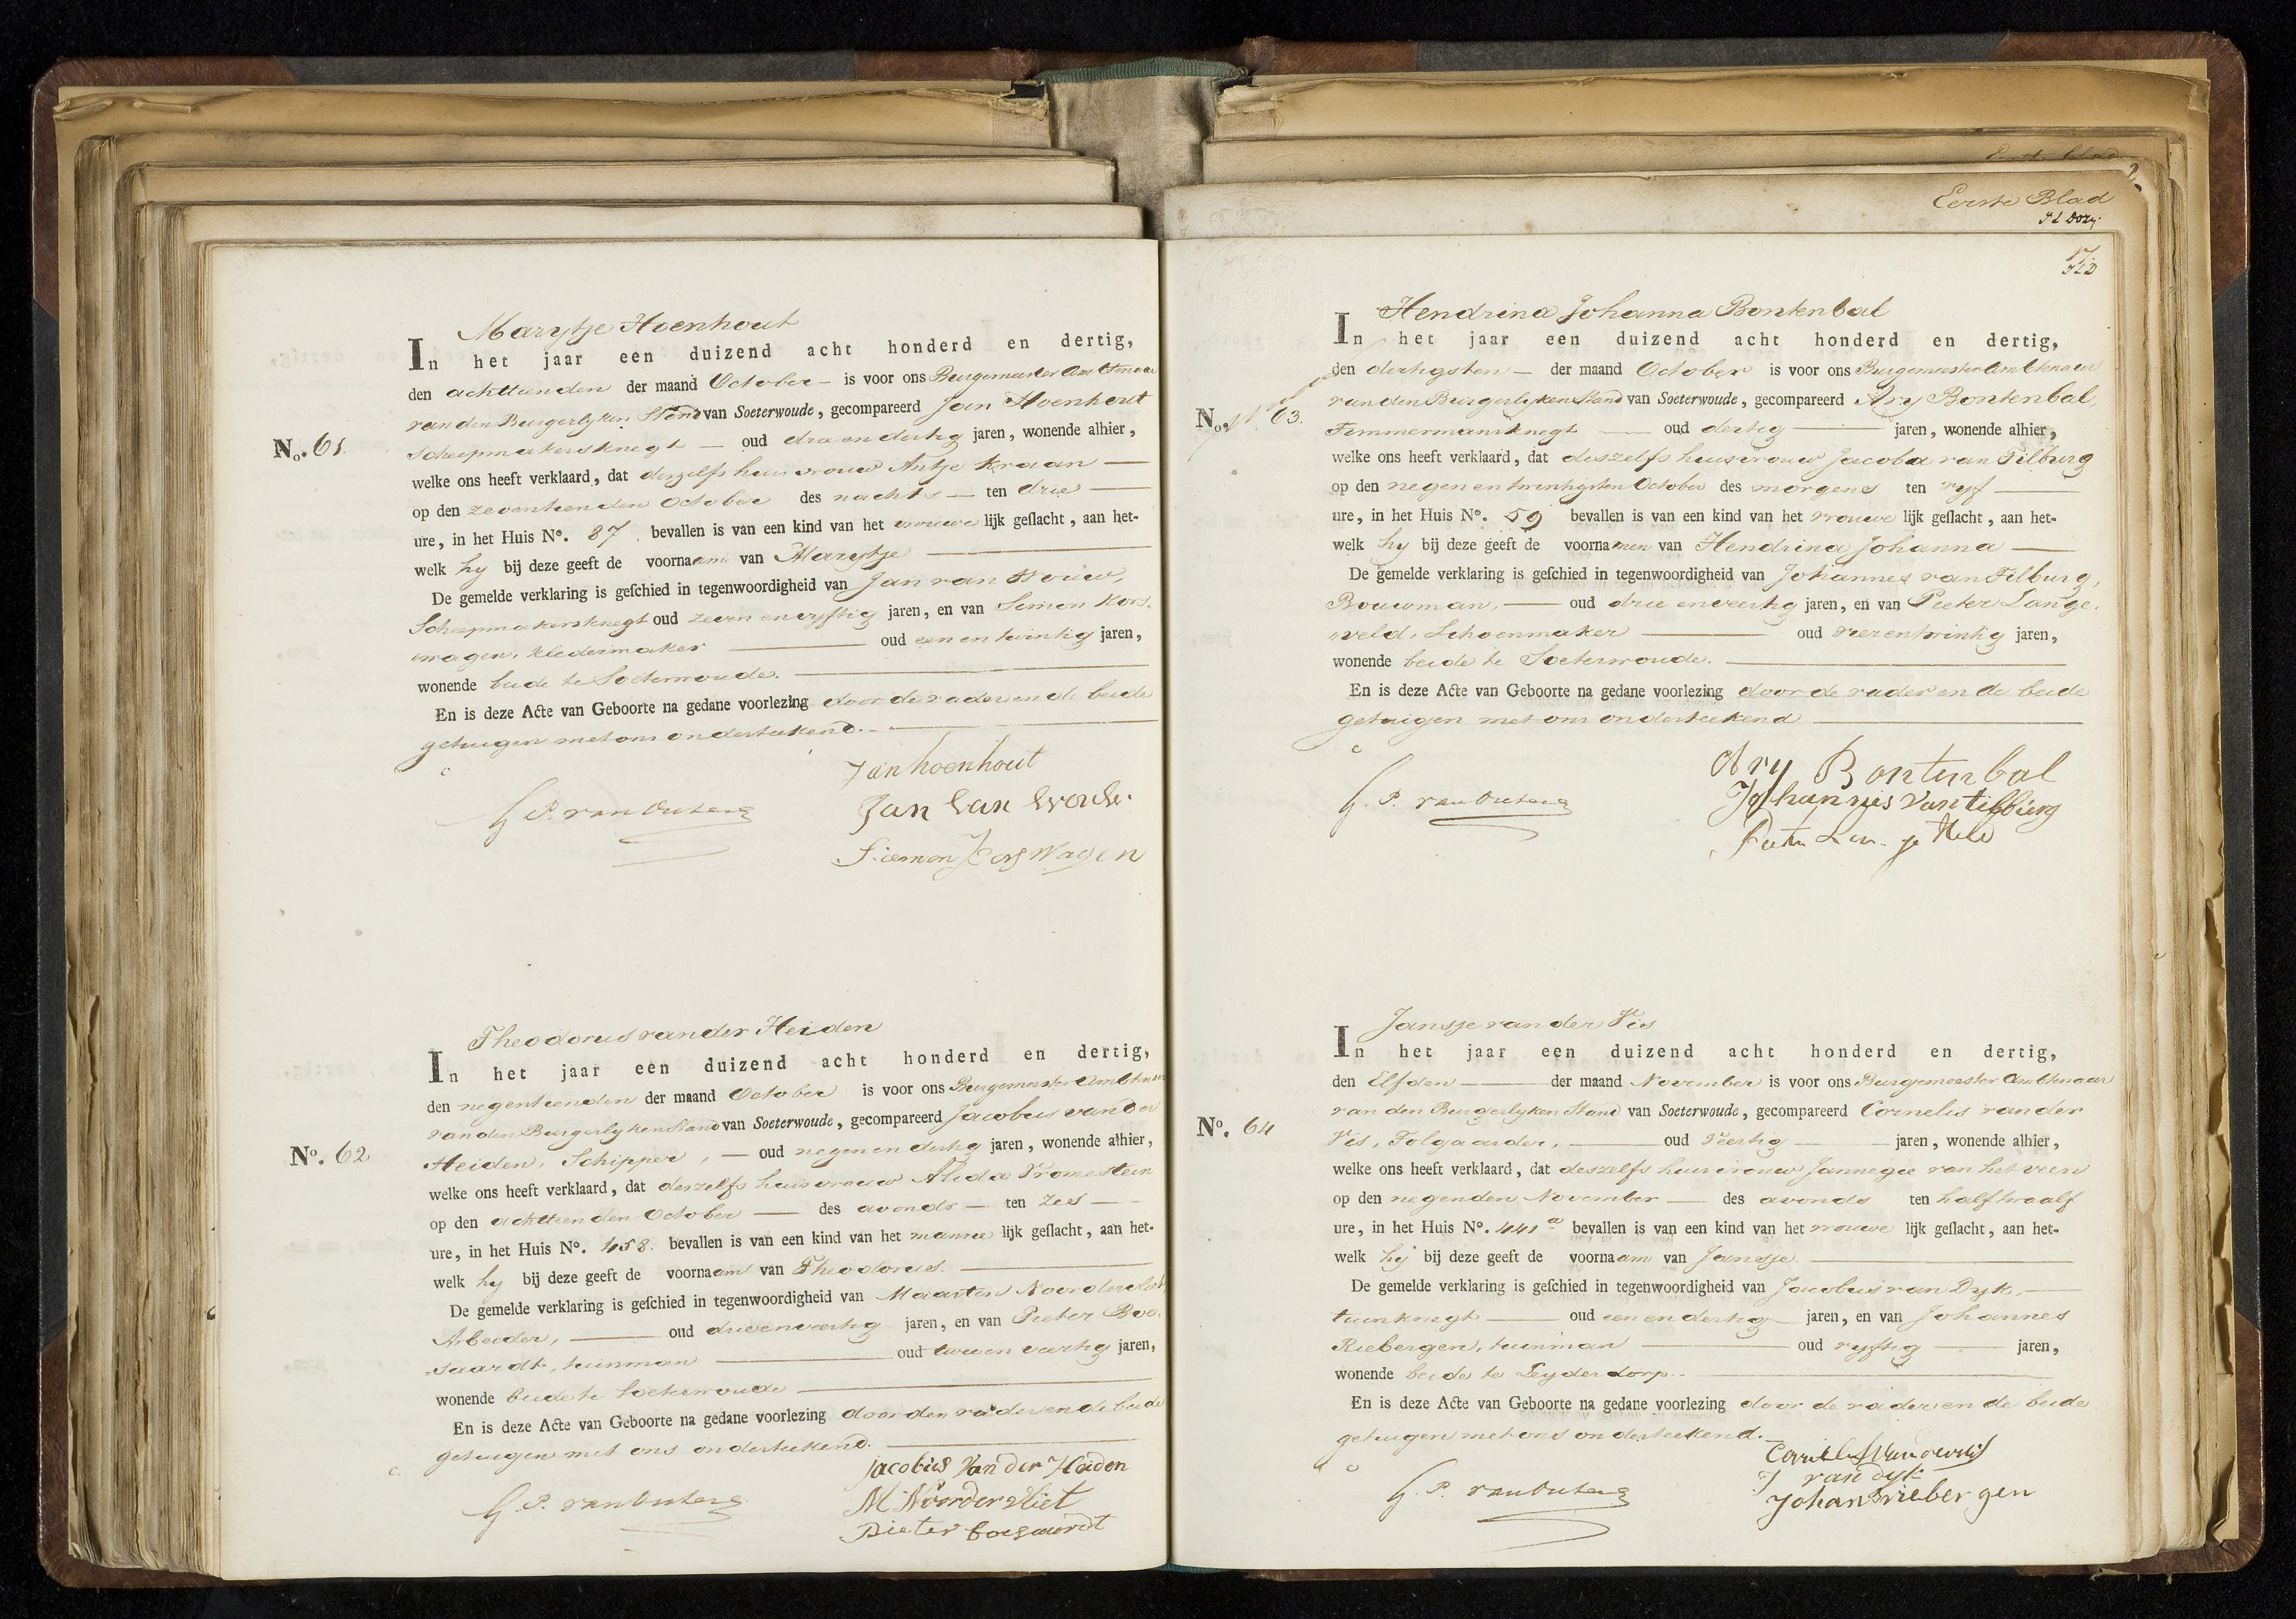 Eerste Blad
17
Marijtje Hoenhout
In het jaar een duizend acht honderd en dertig,
den achttienden der maand October is voor ons Burgemeester Ambtenaar
van den Burgerlyken Stand van Soeterwoude, gecompareerd Jan Hoenhout
No. 61. Scheepmakersknegt — oud drie en dertig jaren, wonende alhier,
welke ons heeft verklaard, dat deszelfs huisvrouw Antje Kraan —
op den zeventienden October des nachts — ten drie —
ure, in het Huis No. 87 bevallen is van een kind van het vrouwe lijk geslacht, aan het-
welk hy bij deze geeft de voornaam van Marijtje —
De gemelde verklaring is geschied in tegenwoordigheid van Jan van Wouw,
Scheepmakersknegt oud zeven en vyftig jaren, en van Siemon Kors-
wagen, kledermaker — oud een en twintig jaren,
wonende beide te Soeterwoude. —
En is deze Acte van Geboorte na gedane voorlezing door de vader en de beide
getuigen met ons onderteekend. —
Jan hoenhout
Jan van
Siemon Kors Wagen
Theodorus van der Heiden
In het jaar een duizend acht honderd en dertig,
den negentienden der maand October is voor ons Burgemeester Ambtenaar
van den Burgerlyken Stand van Soeterwoude, gecompareerd Jacobus van der
No. 62 Heiden, Schipper, — oud negen en dertig jaren, wonende alhier,
welke ons heeft verklaard, dat deszelfs huisvrouw Alida Vromestein
op den achttienden October — des avonds — ten zes —
ure, in het Huis No. 458. bevallen is van een kind van het manne lijk geslacht, aan het-
welk hy bij deze geeft de voornaam van Theodorus. —
De gemelde verklaring is geschied in tegenwoordigheid van Maarten Noordervliet,
Arbeider, — oud drie en veertig jaren, en van Pieter Boo-
saardt, tuinman — oud twee en veertig jaren,
wonende beide te Soeterwoude —
En is deze Acte van Geboorte na gedane voorlezing door den vader en de beide
getuigen met ons onderteekend. —
Jacobus Van der Heiden
M Noordervliet
Pieter
Hendrina Johanna Bontenbal
In het jaar een duizend acht honderd en dertig,
den dertigsten — der maand October is voor ons Burgemeester Ambtenaar
van den Burgerlyken Stand van Soeterwoude, gecompareerd Ary Bontenbal,
No. 63. Timmermansknegt — oud dertig — jaren, wonende alhier,
welke ons heeft verklaard, dat deszelfs huisvrouw Jacoba van Tilburg
op den negen en twintigsten October des morgens ten vyf —
ure, in het Huis No. 59 bevallen is van een kind van het vrouwe lijk geslacht, aan het-
welk hy bij deze geeft de voornamen van Hendrina Johanna —
De gemelde verklaring is geschied in tegenwoordigheid van Johannes van Tilburg,
Bouwman, — oud drie en veertig jaren, en van Pieter Lange-
veld, Schoenmaker — oud vier en twintig jaren,
wonende beide te Soeterwoude. —
En is deze Acte van Geboorte na gedane voorlezing door de vader en de beide
getuigen met ons onderteekend —
Ary Bontenbal
Johannes van
Jansje van der Vis
In het jaar een duizend acht honderd en dertig,
den Elfden — der maand November is voor ons Burgemeester Ambtenaar
van den Burgerlyken Stand van Soeterwoude, gecompareerd Cornelis van der
No. 64 Vis, Tolgaarder, — oud Veertig — jaren, wonende alhier,
welke ons heeft verklaard, dat deszelfs huisvrouw Jannegie van het veen
op den negenden November — des avonds ten half twaalf
ure, in het Huis No. 441 a bevallen is van een kind van het vrouwe lijk geslacht, aan het-
welk hij bij deze geeft de voornaam van Jansje —
De gemelde verklaring is geschied in tegenwoordigheid van Jacobus van Dyk, —
tuinknegt — oud een en dertig — jaren, en van Johannes
Riebergen, tuinman — oud vyftig — jaren,
wonende beide te Leyderdorp. —
En is deze Acte van Geboorte na gedane voorlezing door de vader en de beide
getuigen met ons onderteekend. —
J van dyk